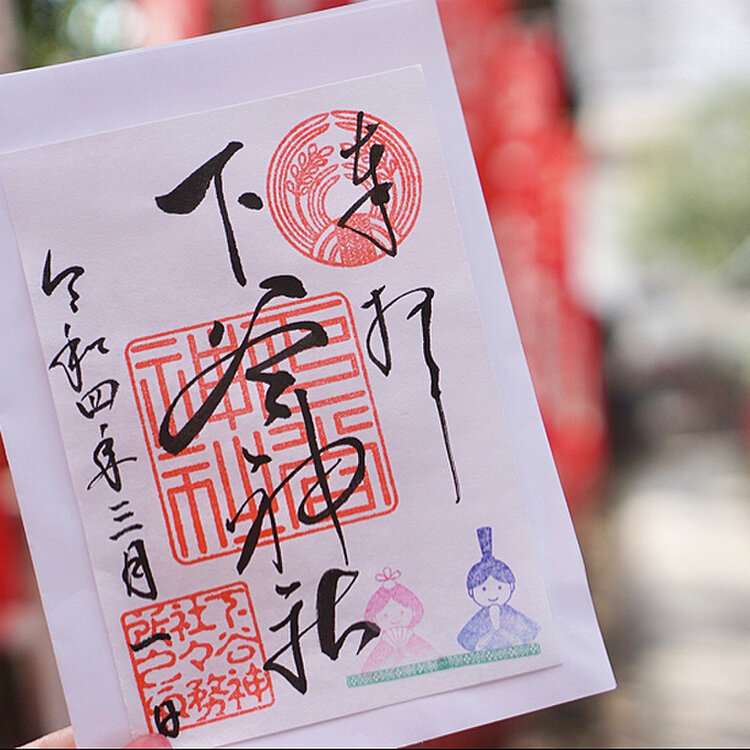 奉拝
下谷神社
令和四年三月一日
下谷神社
下谷神社々務所之印